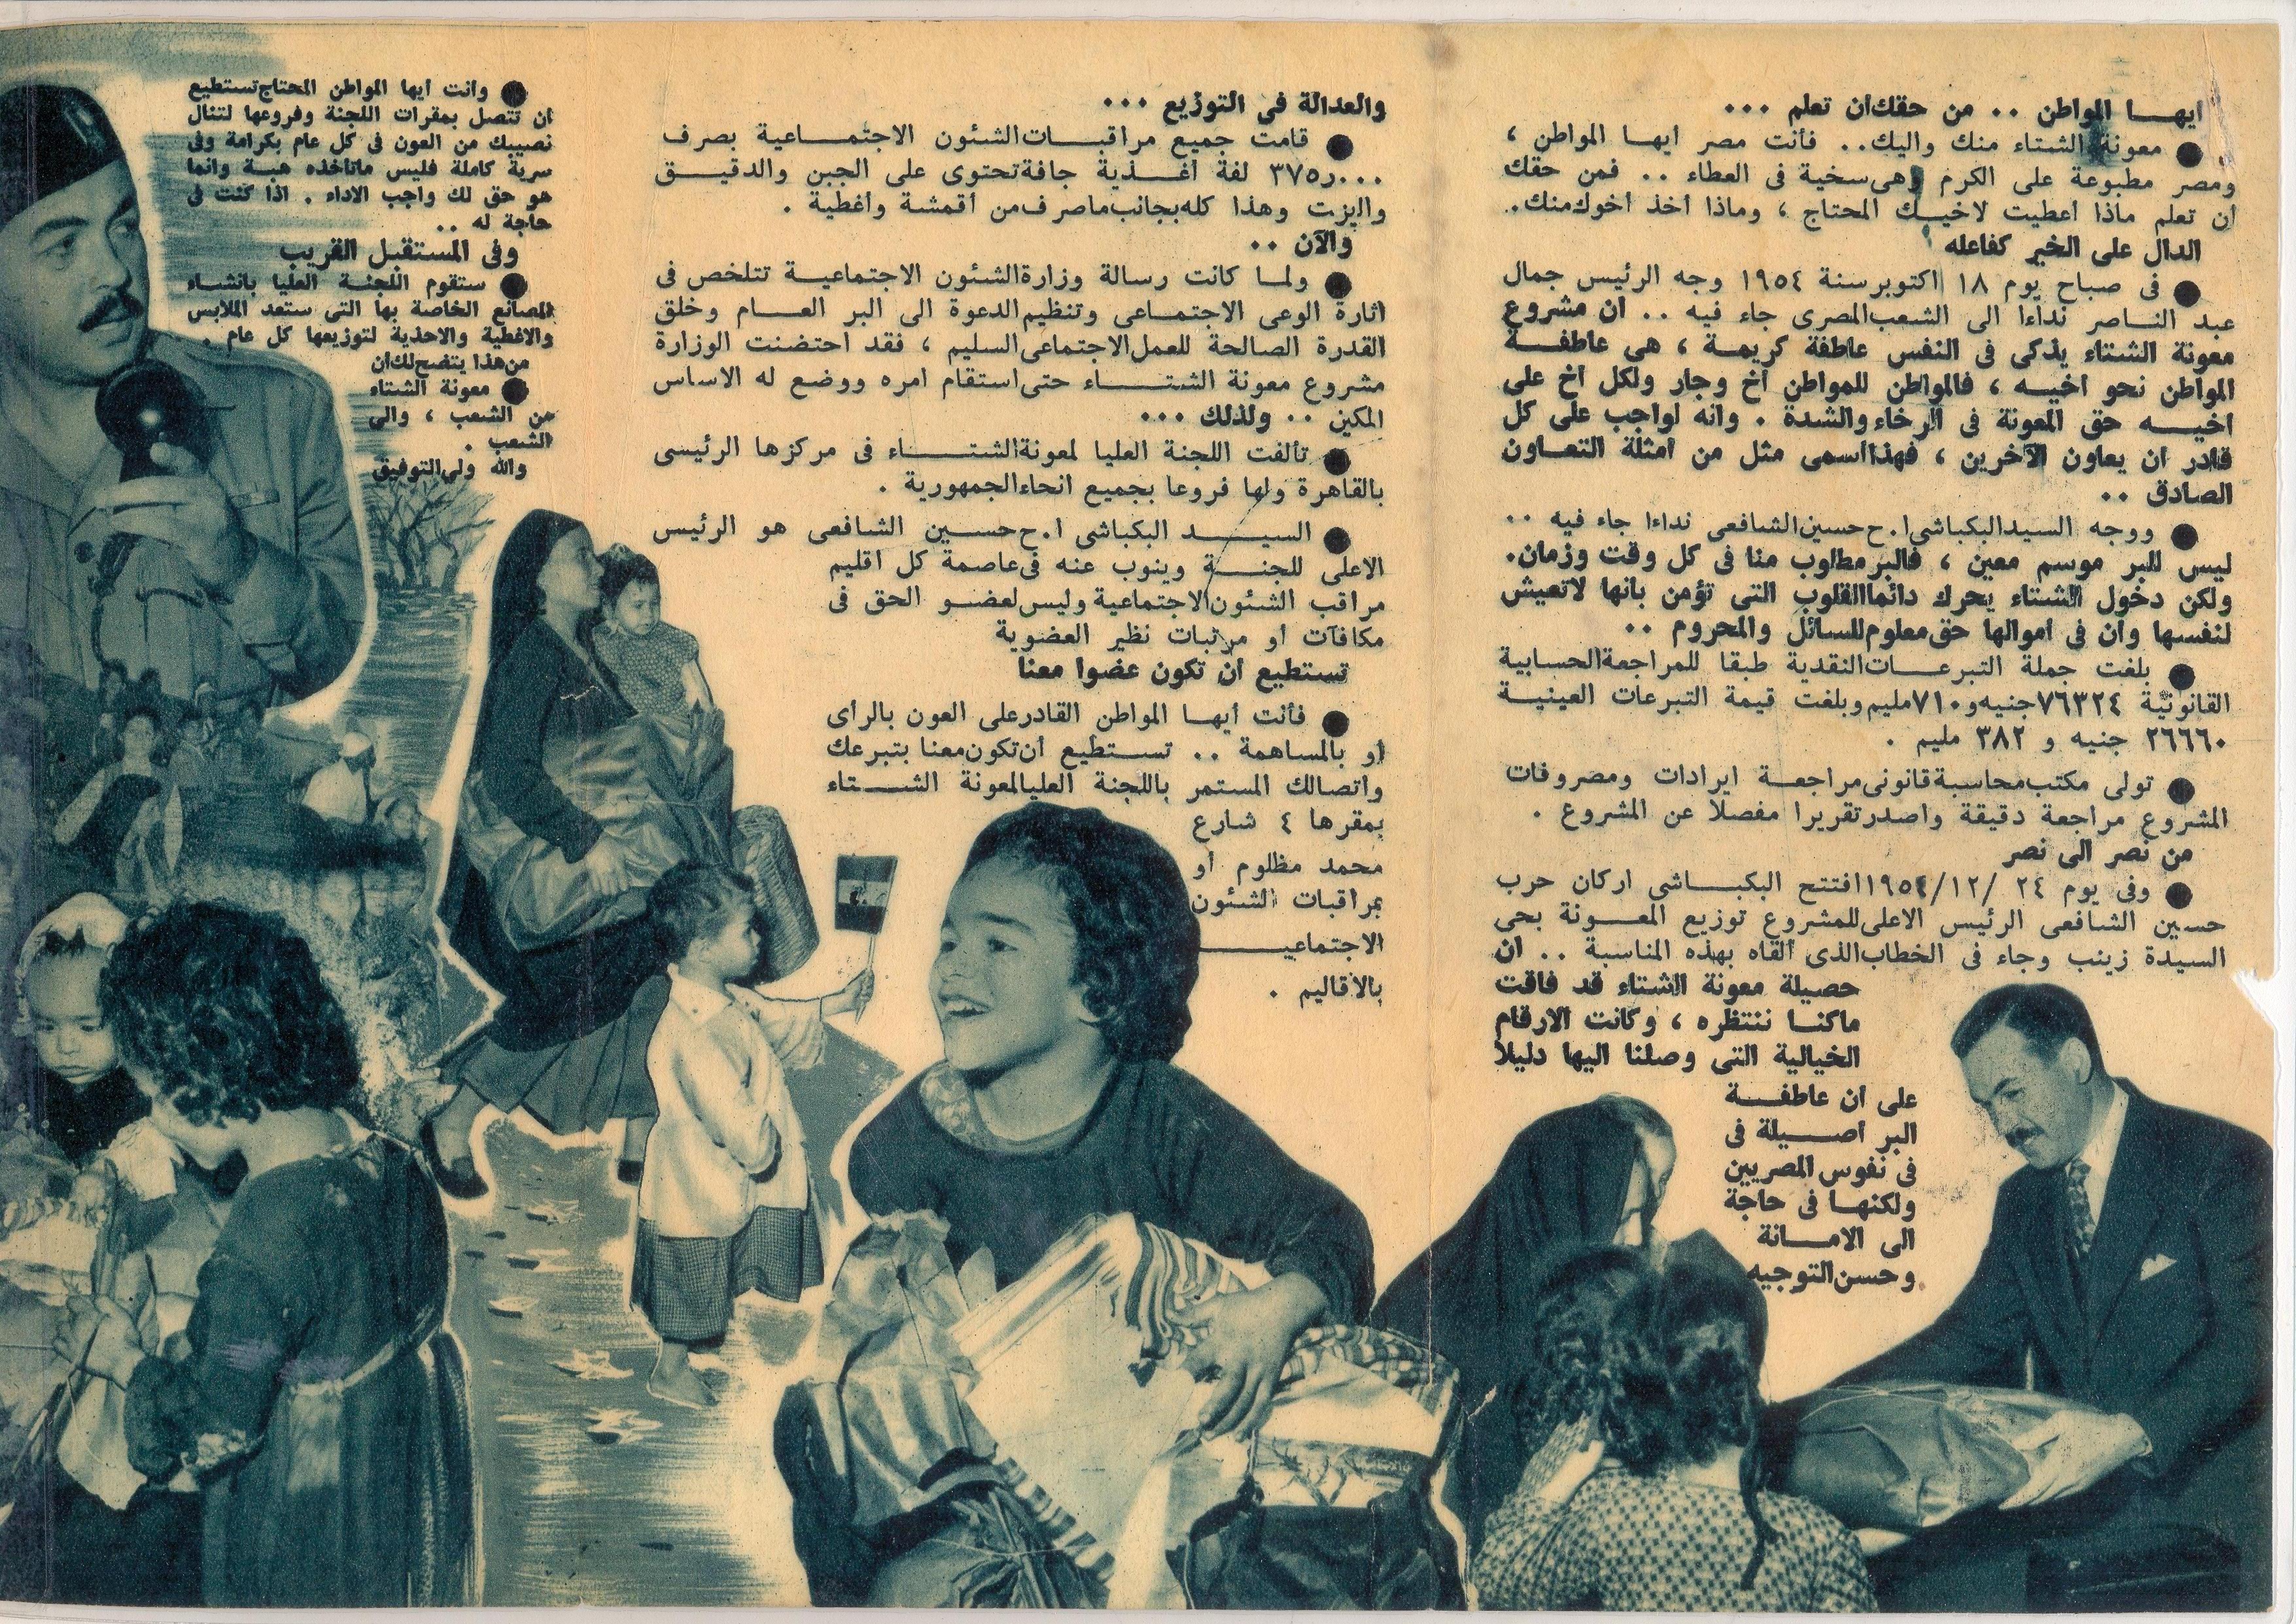 ايهـــا المواطن .. من حقك ان تعلم ...
● معونة الشتاء منك واليك .. فأنت مصر ايهـا المواطن ،
ومصر مطبوعة على الكرم وهى سخية فى العطاء .. فمن حقك
أن تعلم ماذا أعطيت لاخيـك المحتاج ، وماذا أخذ أخوك منك .
الدال على الخير كفاعله
● فى صباح يوم ١٨ اكتوبر سنة ١٩٥٤ وجه الرئيس جمال
عبد النـاصر نداءا الى الشعب المصرى جاء فيه .. ان مشروع
معونة الشتاء يذكى فى النفس عاطفة كريمـة ، هى عاطفـــة
المواطن نحو أخيـه ، فالمواطن للمواطن أخ وجار ولكل أخ على
أخيـــه حق المعونة فى الرخاء والشدة . وانه لواجب على كل
قادر ان يعاون الآخرين ، فهذا أسمى مثل من أمثلة التعـاون
الصادق ..
● ووجه السيد البكباشى ا.ح حسين الشافعى نداءا جاء فيه ..
ليس للبر موسم معين ، فالبر مطلوب منا فى كل وقت وزمان .
ولكن دخول الشتاء يحرك دائما القلوب التى تؤمن بانها لاتعيش
لنفسها وأن فى أموالها حق معلوم للسائل والمحروم ..
● بلغت جملة التبرعـــات النقدية طبقا للمراجعة الحسابية
القانونية ٧٦٣٢٤ جنيه و ٧١٠ مليم وبلغت قيمة التبرعات العينيـة
٢٦٦٦٠ جنيه و ٣٨٢ مليم .
● تولى مكتب محاسبة قانونى مراجعـة ايرادات ومصروفات
المشروع مراجعة دقيقة واصدر تقريرا مفصلا عن المشروع .
من نصر الى نصر
● وفى يوم ٢٤ /١٢/ ١٩٥٤ افتتح البكبـاشى اركان حرب
حسين الشافعى الرئيس الاعلى للمشروع توزيع المعـونة بحى
السيدة زينب وجاء فى الخطاب الذى ألقاه بهذه المناسبة .. ان
حصيلة معونة الشتاء قد فاقت
ماكنـا ننتظره ، وكانت الارقام
الخيالية التى وصلنا اليها دليلا
على أن عاطفـــة
البر أصـــيلة فى
فى نفوس المصريين
ولكنهـا فى حاجة
الى الامـــانة
وحسن التوجيه .
والعدالة فى التوزيع ...
● قامت جميع مراقبـات الشئون الاجتمـــاعية بصرف
٣٧٥ر٠٠٠ لفة أغـذية جافة تحتوى على الجبن والدقيـق
والزيت وهذا كله بجانب ماصرف من أقمشة وأغطية .
والآن ..
● ولمـا كانت رسالة وزارة الشئون الاجتماعيـة تتلخص فى
اثارة الوعى الاجتمـاعى وتنظيم الدعوة الى البر العـــام وخلق
القدرة الصالحة للعمل الاجتماعى السليم ، فقد احتضنت الوزارة
مشروع معونة الشتـــاء حتى استقام امره ووضع له الاساس
المكين .. ولذلك ...
● تألفت اللجنة العليا لمعونة الشتـــاء فى مركزها الرئيسى
بالقاهرة ولها فروعا بجميع انحاء الجمهورية .
● السيـــد البكباشى ا.ح حسـين الشافعى هو الرئيس
الاعلى للجنـة وينوب عنه فى عاصمة كل اقليم
مراقب الشئون الاجتماعية وليس لعضـو الحق فى
مكافآت أو مرتبات نظير العضوية
تستطيع أن تكون عضوا معنا
● فأنت أيهـا المواطن القادر على العون بالرأى
أو بالمساهمة .. تستطيع أن تكون معنا بتبرعك
واتصالك المستمر باللجنة العليا لمعونة الشـــتاء
بمقرها ٤ شارع
محمد مظلوم أو
بمراقبات الشئون
الاجتماعيـــــة
بالاقاليم .
● وأنت أيها المواطن المحتاج تستطيع
ان تتصل بمقرات اللجنة وفروعها لتنال
نصيبك من العون فى كل عام بكرامة وفى
سرية كاملة فليس ماتأخذه هبـة وانما
هو حق لك واجب الاداء . اذا كنت فى
حاجة له ..
وفى المستقبل القريب
● ستقوم اللجنـة العليا بانشـاء
المصانع الخاصة بها التى ستعد الملابس
والاغطية والاحذية لتوزيعها كل عام .
من هذا يتضح لك ان
● معونة الشتاء
من الشعب ، والى
الشعب .
والله ولى التوفيق